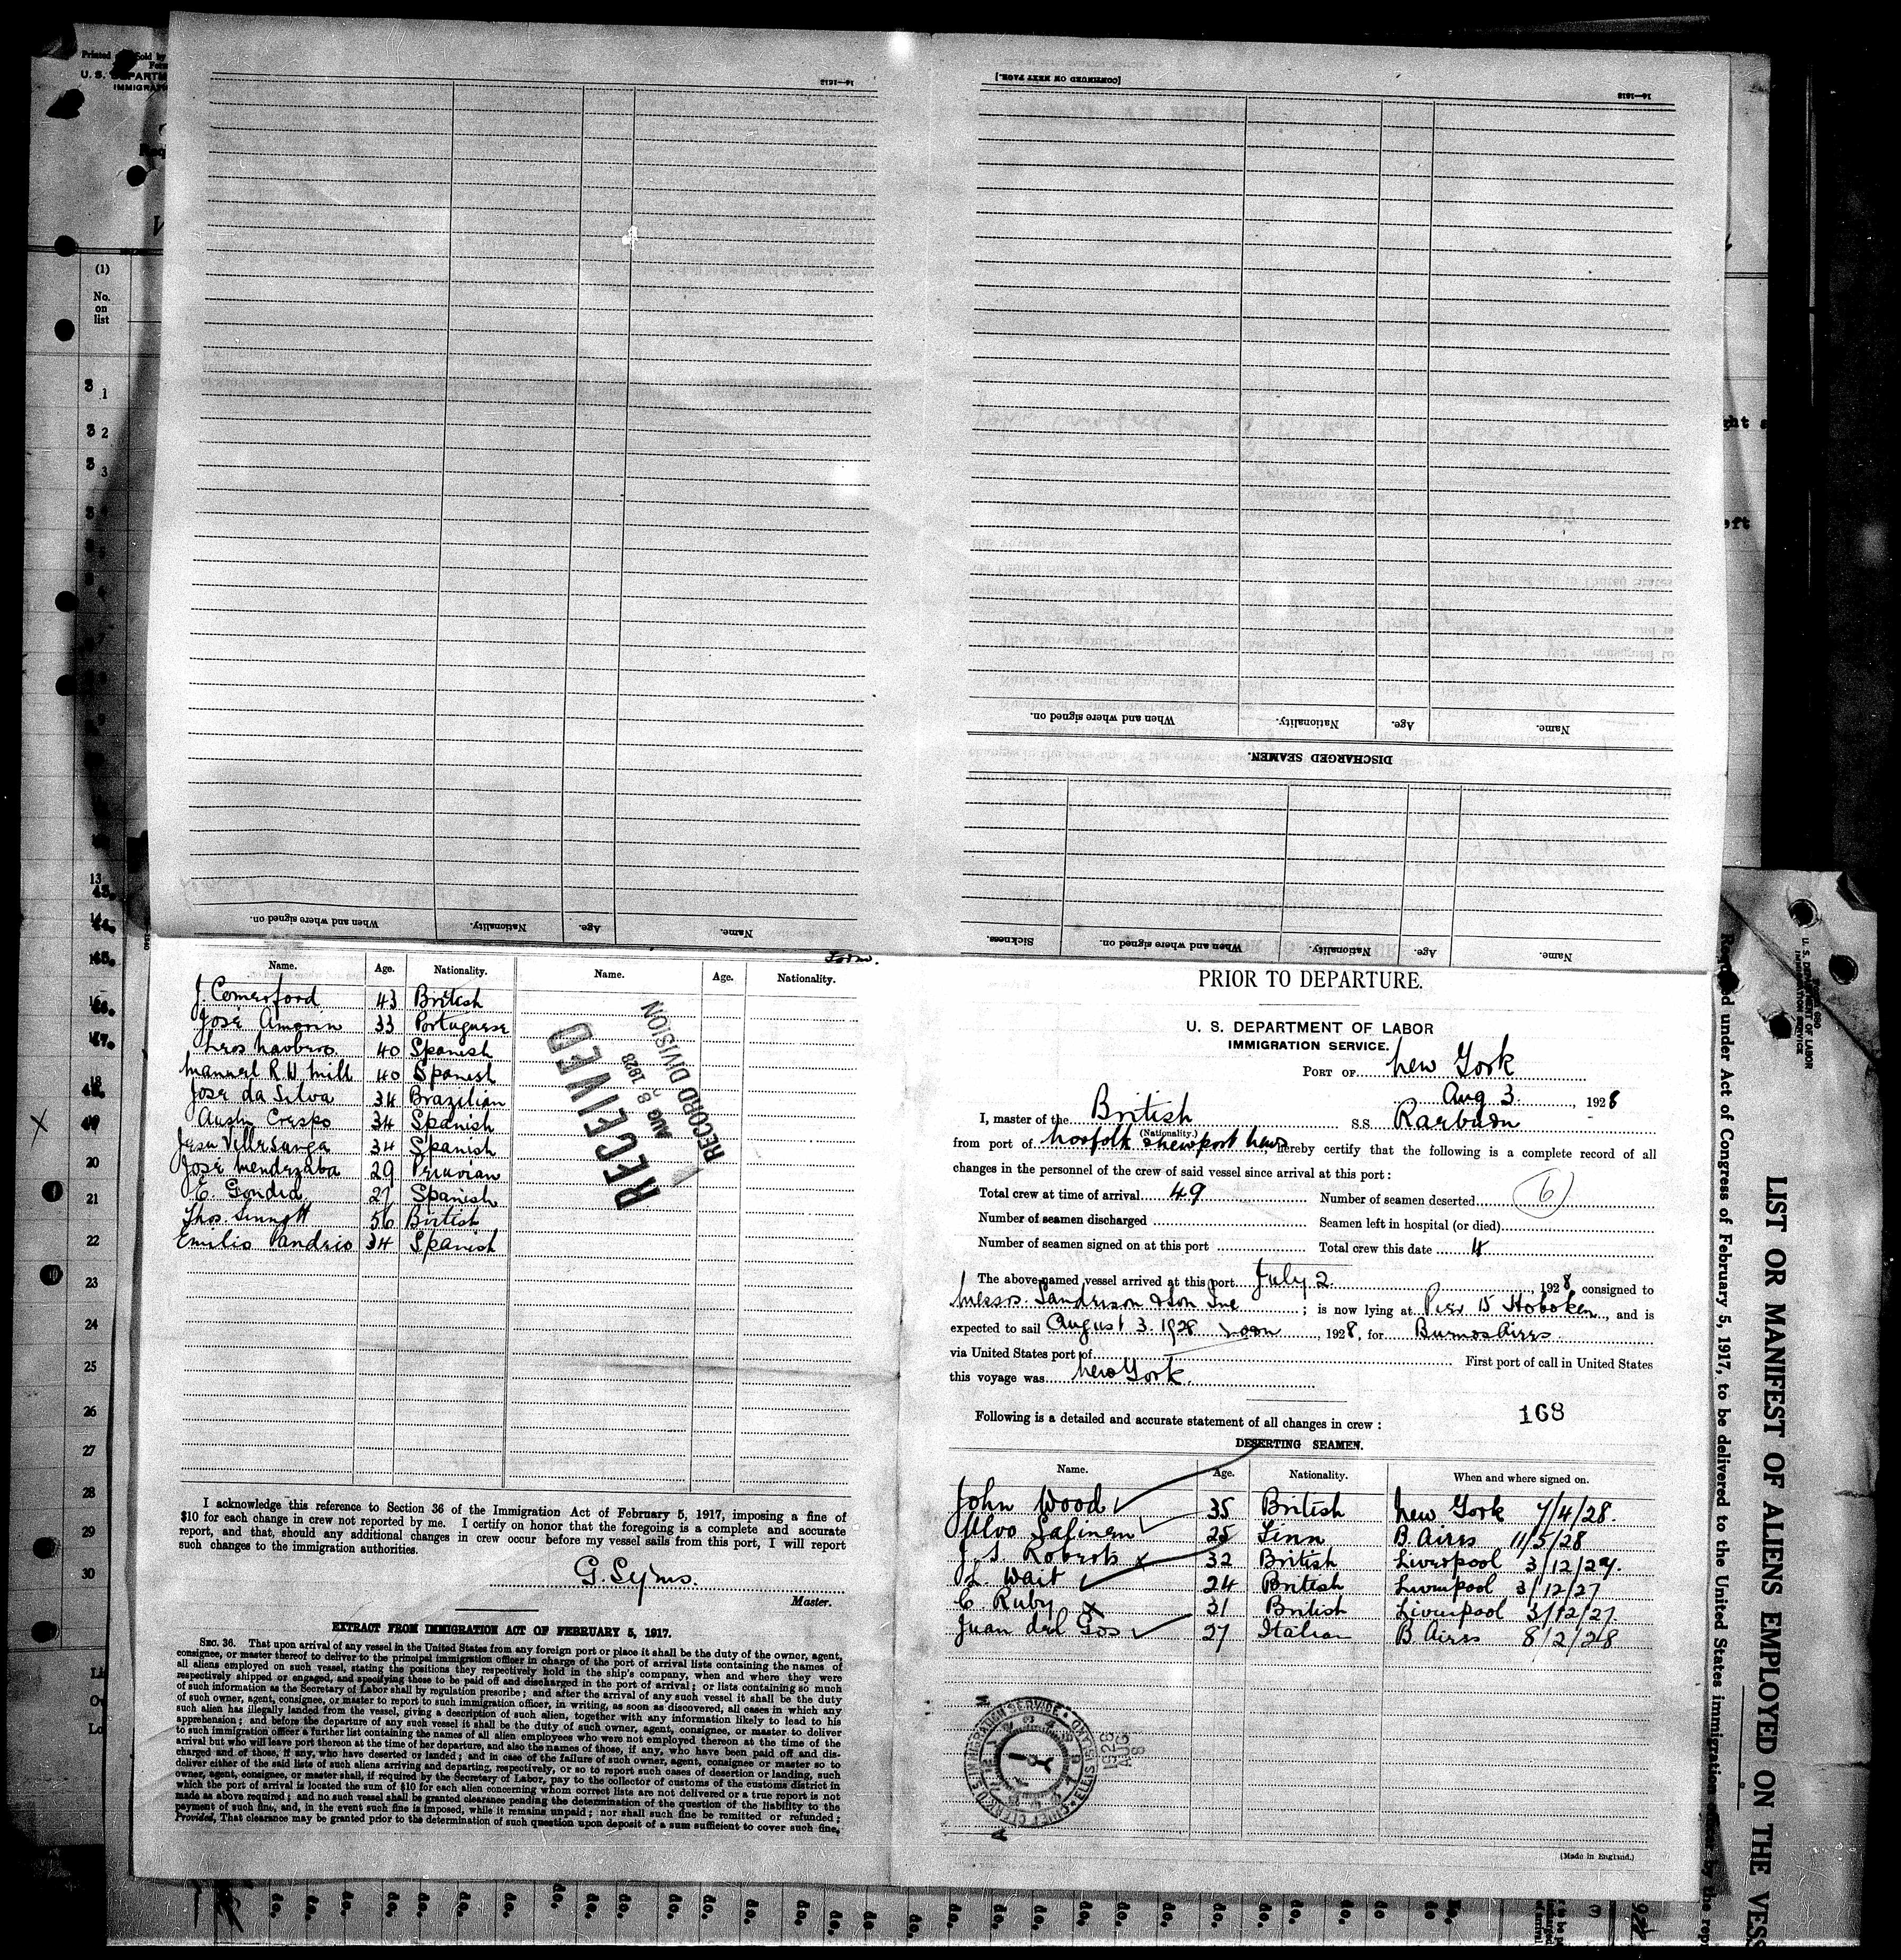 [CONTINUED ON NEXT PAGE.]
14—1618
14—1618
When and where signed on.
Nationality.
Age.
Name.
DISCHARGED SEAMEN.
Sickness.
When and where signed on.
Nationality.
Age.
Name.
When and where signed on.
Nationality.
Age.
Name.
Name. Age. Nationality. Name. Age. Nationality.
J. Comerford 43 British
José Amorin 33 Portuguese
40 Spanish
Manuel R. 40 Spanish
José da Silva 34 Brazilian
Crespo 34 Spanish
34 Spanish
José 29 Peruvian
E. 27 Spanish
Thos. Sinnott 56 British
Emilio 34 Spanish
RECEIVED
AUG 8 1928
RECORD DIVISION
I acknowledge this reference to Section 36 of the Immigration Act of February 5, 1917, imposing a fine of
$10 for each change in crew not reported by me. I certify on honor that the foregoing is a complete and accurate
report, and that, should any additional changes in crew occur before my vessel sails from this port, I will report
such changes to the immigration authorities.
G. Syms.
Master.
EXTRACT FROM IMMIGRATION ACT OF FEBRUARY 5, 1917.
SEC. 36. That upon arrival of any vessel in the United States from any foreign port or place it shall be the duty of the owner, agent,
consignee, or master thereof to deliver to the principal immigration officer in charge of the port of arrival lists containing the names of
all aliens employed on such vessel, stating the positions they respectively hold in the ship's company, when and where they were
respectively shipped or engaged, and specifying those to be paid off and discharged in the port of arrival; or lists containing so much
of such information as the Secretary of Labor shall by regulation prescribe; and after the arrival of any such vessel it shall be the duty
of such owner, agent, consignee, or master to report to such immigration officer, in writing, as soon as discovered, all cases in which any
such alien has illegally landed from the vessel, giving a description of such alien, together with any information likely to lead to his
apprehension; and before the departure of any such vessel it shall be the duty of such owner, agent, consignee, or master to deliver
to such immigration officer a further list containing the names of all alien employees who were not employed thereon at the time of the
arrival but who will leave port thereon at the time of her departure, and also the names of those, if any, who have been paid off and dis-
charged and of those, if any, who have deserted or landed; and in case of the failure of such owner, agent, consignee or master so to
deliver either of the said lists of such aliens arriving and departing, respectively, or so to report such cases of desertion or landing, such
owner, agent, consignee, or master shall, if required by the Secretary of Labor, pay to the collector of customs of the customs district in
which the port of arrival is located the sum of $10 for each alien concerning whom correct lists are not delivered or a true report is not
made as above required; and no such vessel shall be granted clearance pending the determination of the question of the liability to the
payment of such fine, and, in the event such fine is imposed, while it remains unpaid; nor shall such fine be remitted or refunded;
Provided, That clearance may be granted prior to the determination of such question upon deposit of a sum sufficient to cover such fine.
PRIOR TO DEPARTURE.
U. S. DEPARTMENT OF LABOR
IMMIGRATION SERVICE.
PORT OF New York
Aug 3, 1928
I, master of the British S.S.
(Nationality.)
from port of Norfolk & Newport News, hereby certify that the following is a complete record of all
changes in the personnel of the crew of said vessel since arrival at this port:
Total crew at time of arrival 49 Number of seamen deserted 6
Number of seamen discharged Seamen left in hospital (or died)
Number of seamen signed on at this port Total crew this date
The above-named vessel arrived at this port July 2 1928 consigned to
Messrs. Sanderson & Son Inc; is now lying at Pier 15 Hoboken, and is
expected to sail August 3. 1928 noon, 1928, for Buenos Aires.
via United States port of First port of call in United States
this voyage was New York.
Following is a detailed and accurate statement of all changes in crew:
168
DESERTING SEAMEN.
Name. Age. Nationality. When and where signed on.
John Wood 35 British New York 7/4/28.
25 Finn B Aires 11/5/28
J. S. Roberts x 32 British Liverpool 3/12/27.
L. Wait 24 British Liverpool 3/12/27
C. Ruby x 31 British Liverpool 3/12/27
Juan del 27 Italian B. Aires 8/2/28
1928
AUG
8
(Made in England.)
(1)
No.
on
list
1
2
3
13
20
21
22
23
24
25
26
27
28
29
30
LIST OR MANIFEST OF ALIENS EMPLOYED ON THE VESS
under Act of Congress of February 5, 1917, to be delivered to the United States immigration
U. S. DEPARTMENT OF LABOR
IMMIGRATION SERVICE
do. do. do. do. do. do. do. do. do. do. do. do. do. do. do. do.